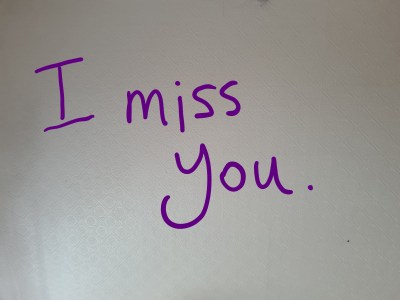 I miss
you.